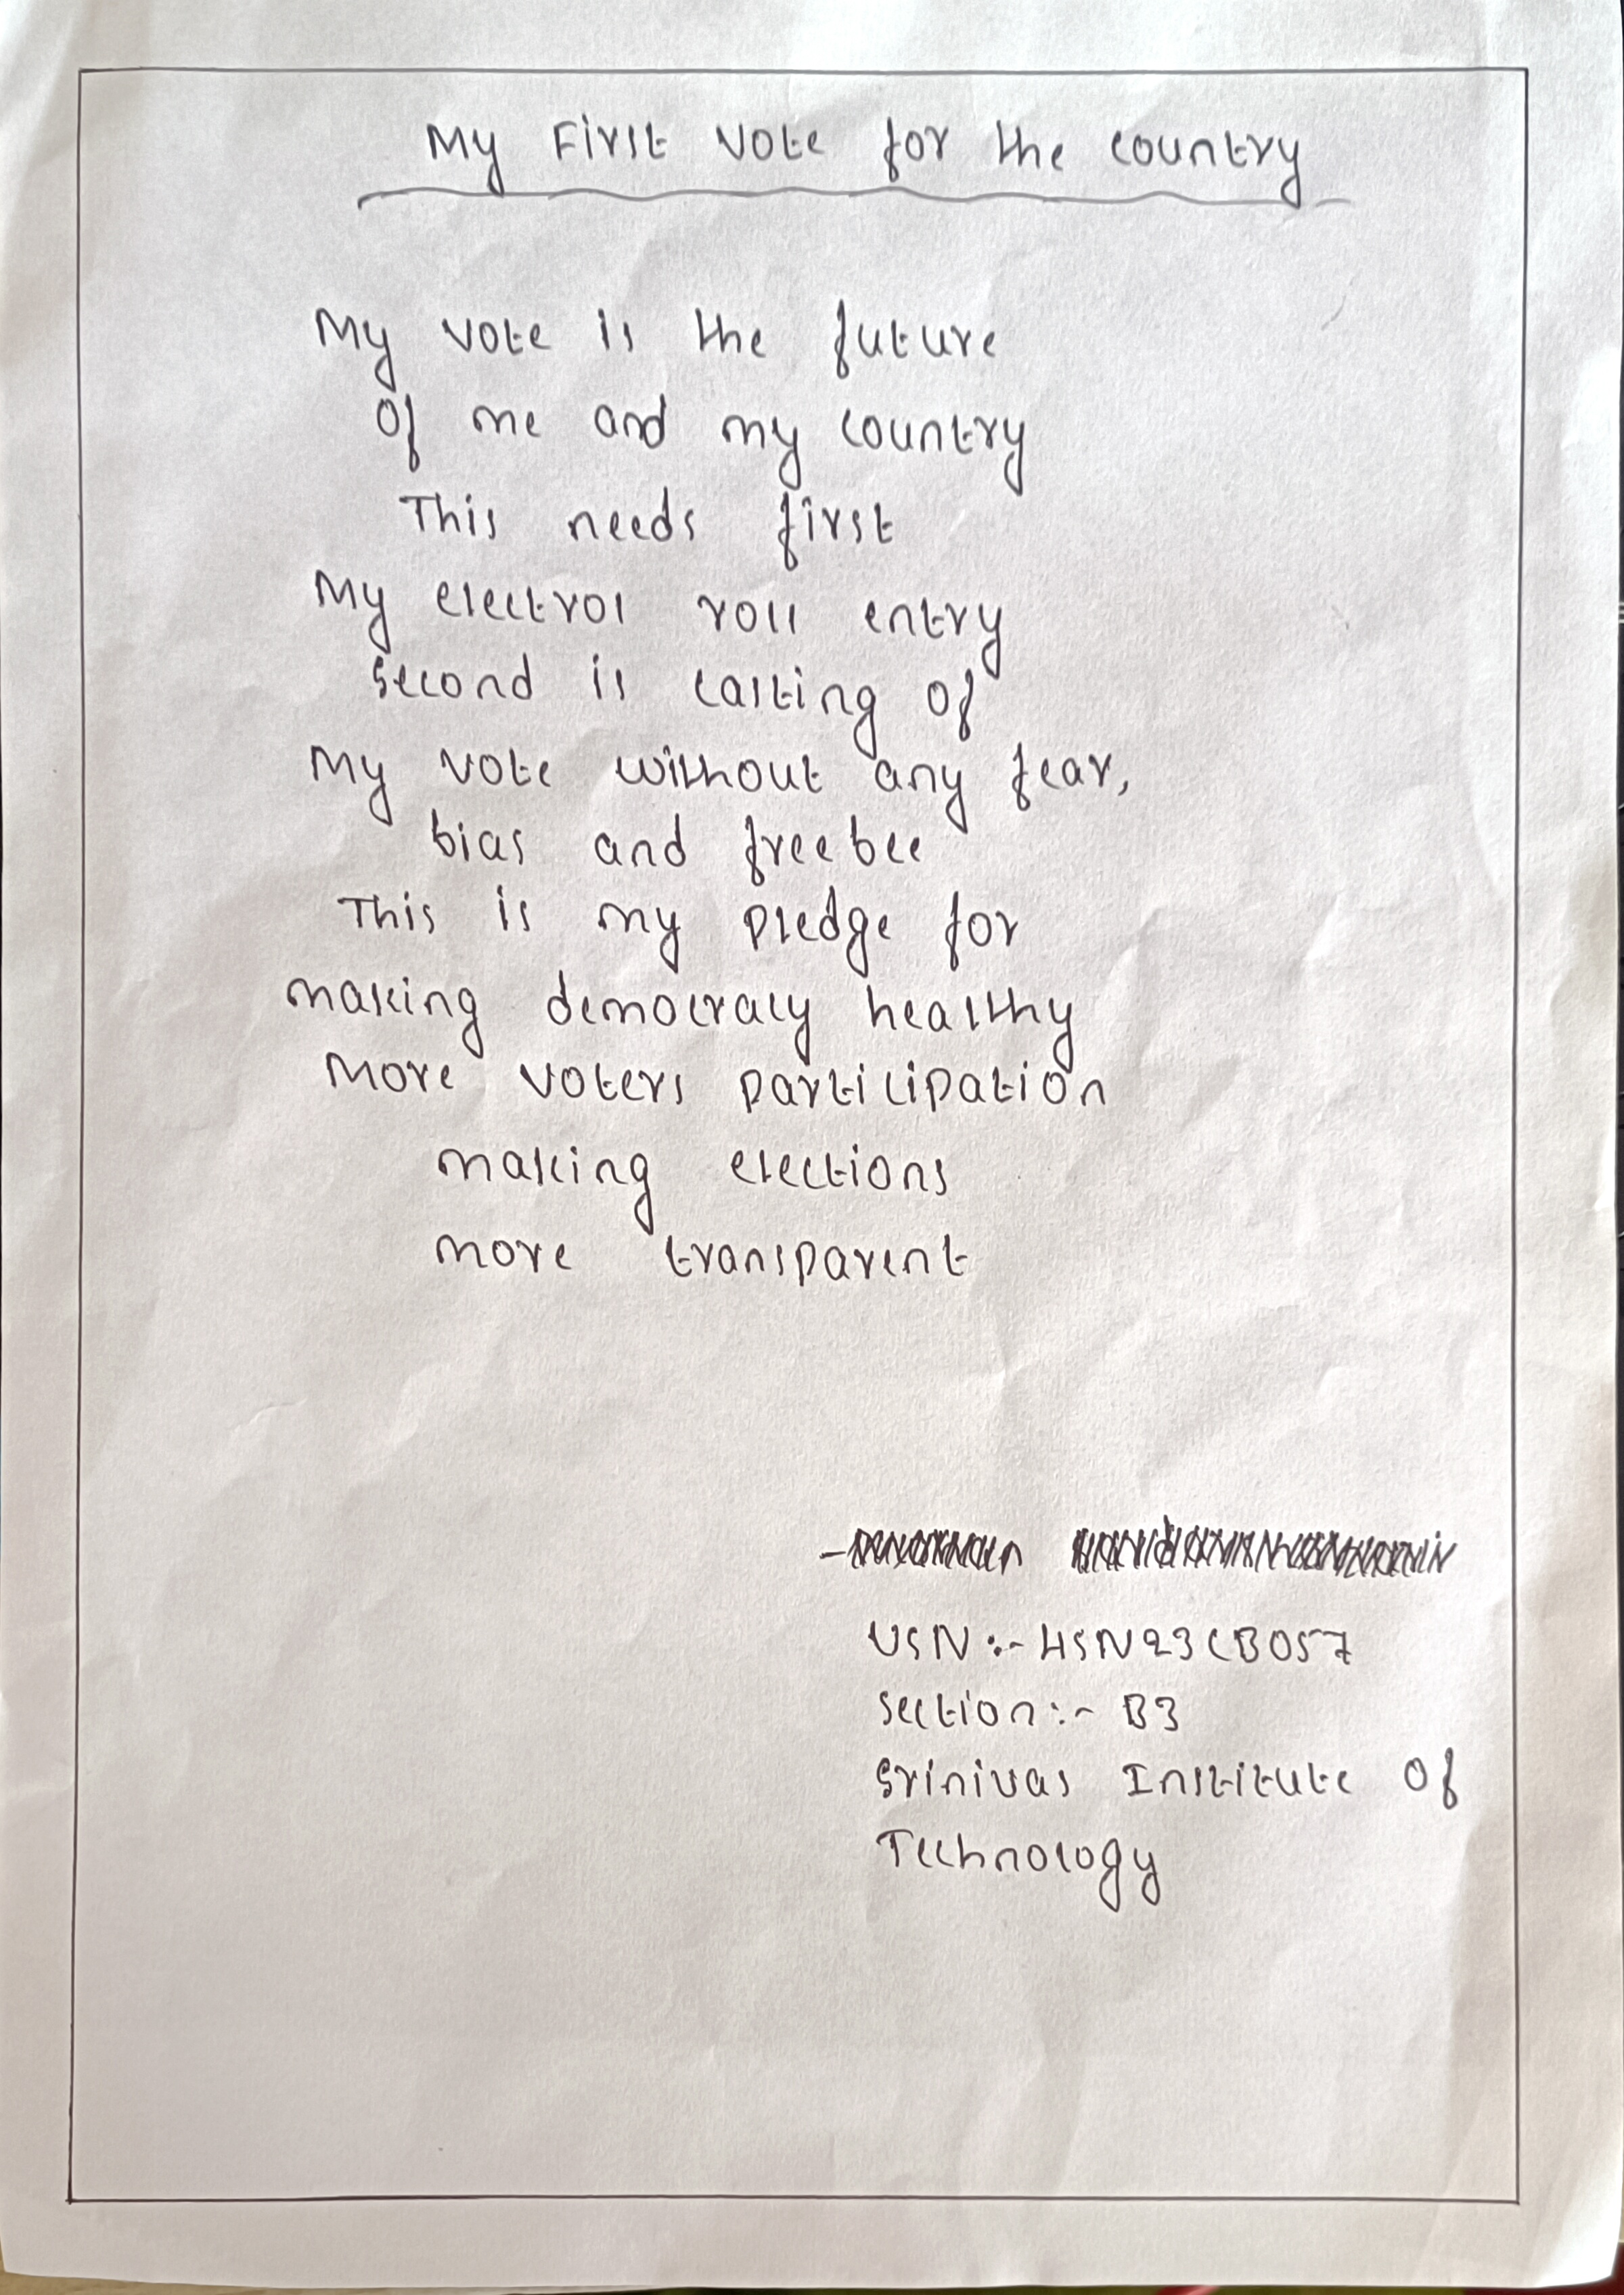 My First Vote for the country
My vote is the future
Of me and my country
This needs first
My electrol roll entry
Second is casting of
My vote without any fear,
bias and freebee
This is my pledge for
making democracy healthy
More voters participation
making elections
more transparent
USN :- 4SN23CB057
Section :- B3
Srinivas Institute Of
Technology